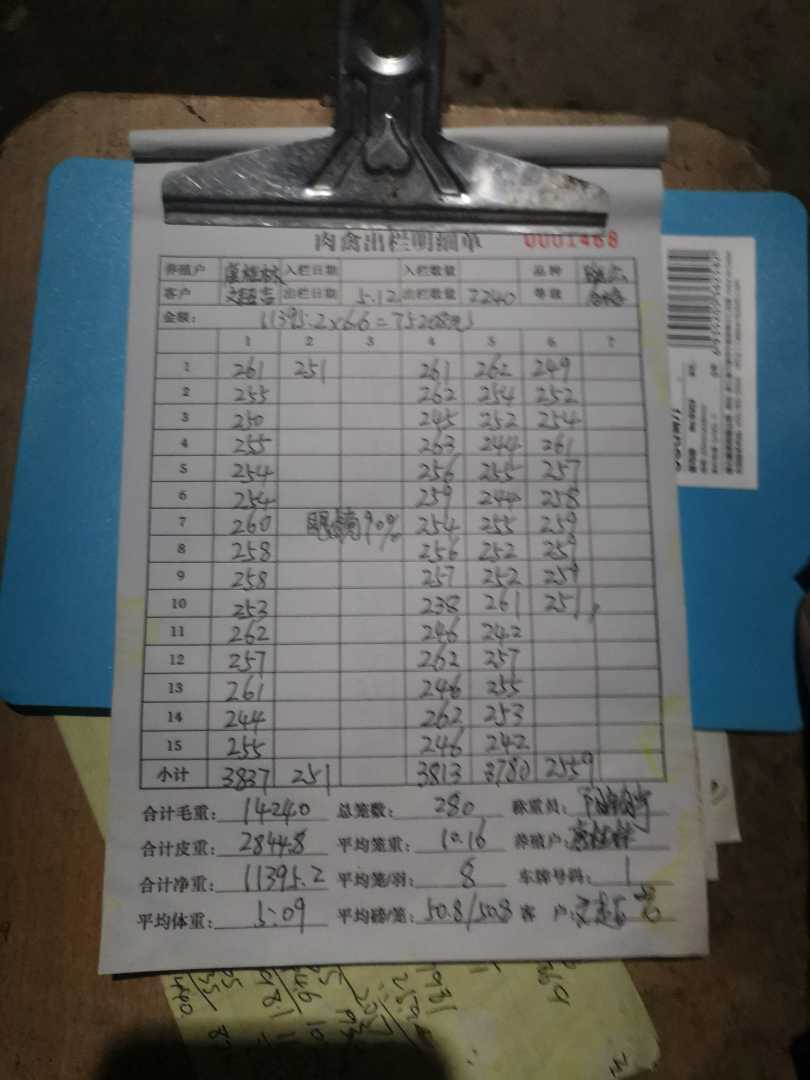 肉禽出栏明细单 0001468
养殖户 入栏日期 入栏数量 品种
客户 出栏日期 5.12 出栏数量 2240 等级 合格
金额: 11395.2×6.6=75208元
1 2 3 4 5 6 7
1 261 251 261 262 249
2 255 262 254 252
3 250 245 252 254
4 255 263 244 261
5 254 256 255 257
6 254 259 244 258
7 260 眼镜90% 254 255 259
8 258 256 252 259
9 258 257 252 259
10 253 238 261 251
11 262 246 242
12 257 262 257
13 261 246 255
14 244 262 253
15 255 246 242
小计 3837 251 3813 3780 2559
合计毛重: 14240 总笼数: 280 称重员:
合计皮重: 2844.8 平均笼重: 10.16 养殖户:
合计净重: 11395.2 平均笼/羽: 8 车牌号码: 1
平均体重: 5.09 平均磅/笼: 50.8/50.8 客 户: